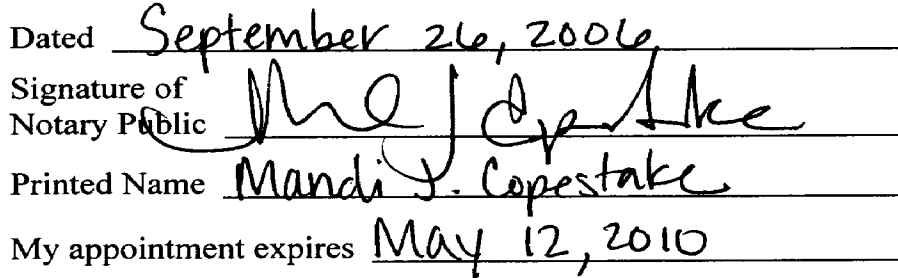 Dated September 26, 2006
Signature of
Notary Public
Printed Name Mandi J. Copestake
My appointment expires May 12, 2010